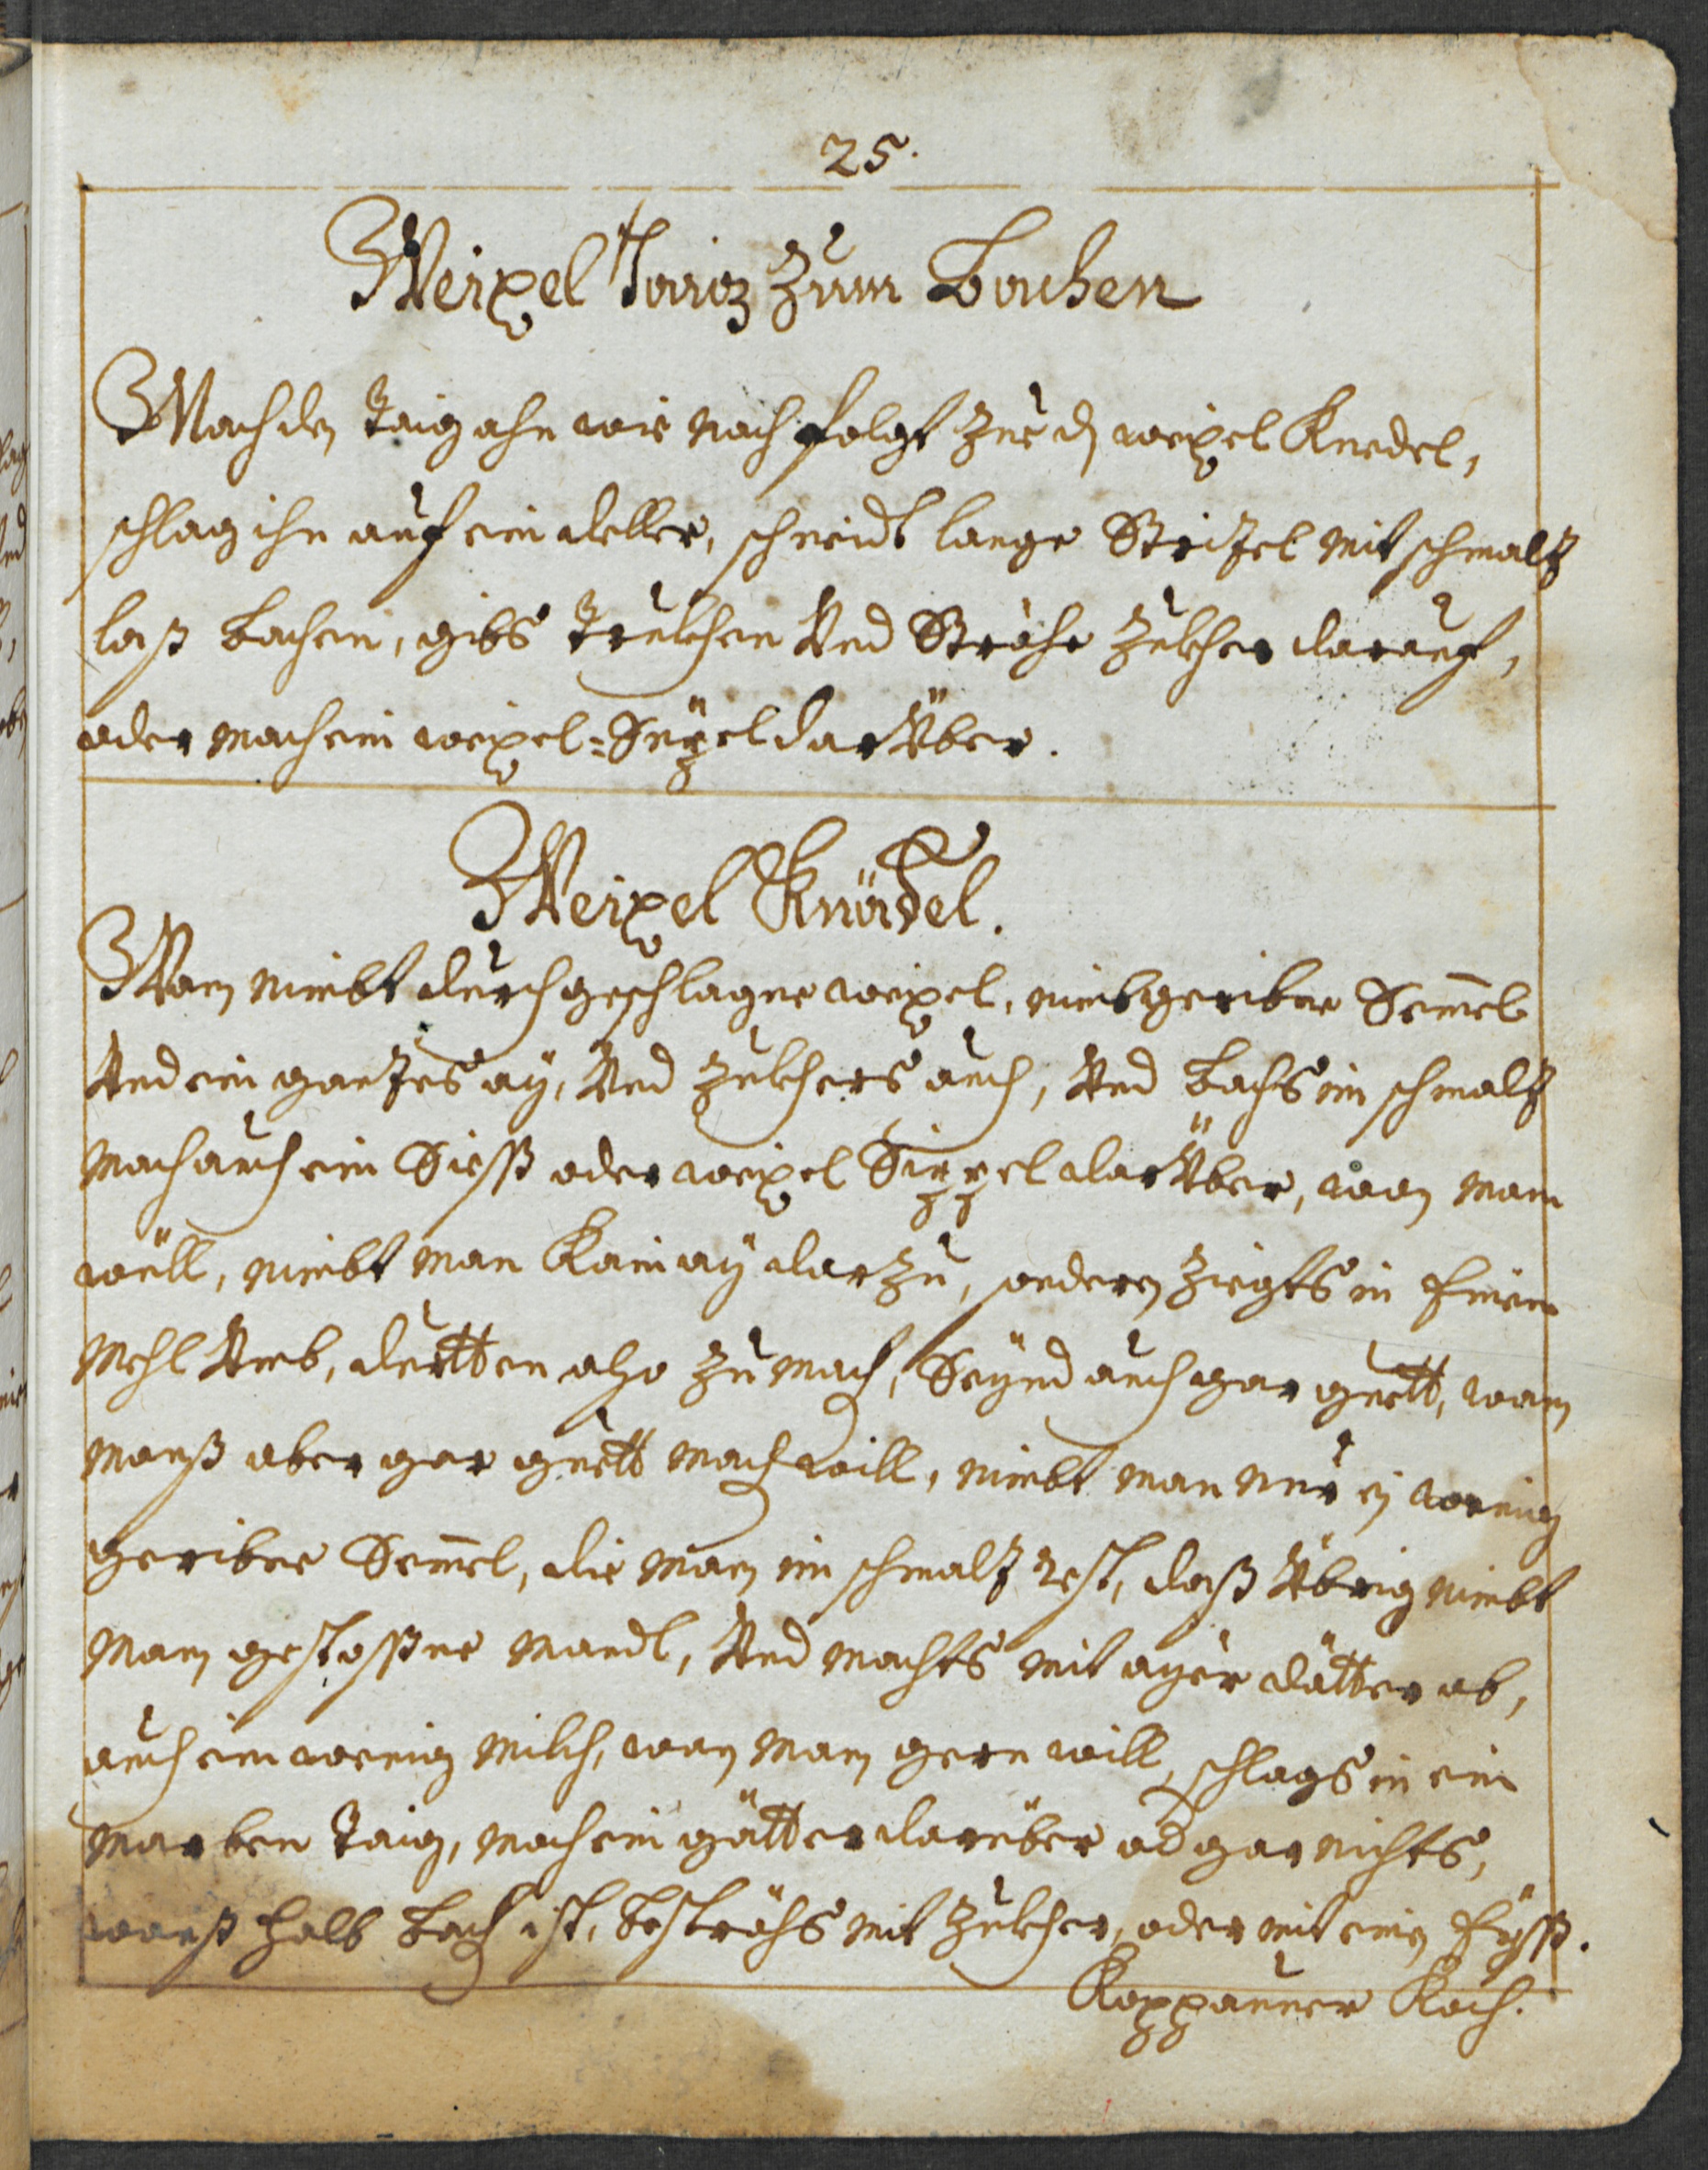 25.
Weixel Taig zum Bachen
Mach den Taig ahn wie nach folgt zue dj weixel Knedel,
schlag ihn auf ein deller, schneidt lange Strizel mit schmalz
laß bachen, gibs Trukhen Vnd Strähe Zukher darauf,
oder mach ein weixel-Süppel dar Vber.
Weixel Knödel.
Man nimbt durchgeschlagne weixel, nimb geribne Semel
Vnd ein ganzes ay, Vnd Zukhers auch, Vnd bachs im schmalz
mach auch ein Siess oder weixel Sippel dar Vber, wan man
wüll, nimbt man Kain ay darzu, sonderen ziegts in feinen
Mehl Vmb, also zu mach, Seynd auch gar guett, wan
manß aber gar guett mach will, nimbt man nur ein wenig
geribne Semel, die man im schmalz rest, daß Vbrig nimbt
man gestossne mandl, Vnd machts mit ayer dätter ab,
auch ein wenig milch, wan man gern will, schlags in ein
marben Taig, mach ein gätter darüber od gar nichts,
wanß halb bach ist, besträhs mit Zukher, oder mit einen Eyss.
Koppauner Koch.